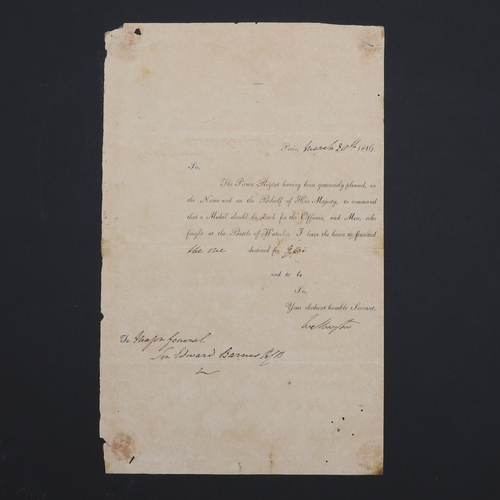 Paris, March 20th 1816
Sir,
The Prince Regent having been graciously pleased, in
the Name and on the Behalf of His Majesty, to command
that a Medal should be struck for the Officers, and Men, who
fought at the Battle of Waterloo, I have the honor to forward
the one destined for you
and to be
Sir,
Your obedient humble Servant,
Wellington
To Major General
Sir Edward Barnes